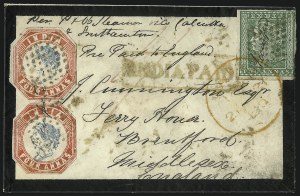 Per P & O Steamer via Calcutta
& Southampton
Pre Paid to England
INDIA PAID
J. Cunnington Esqr
Ferry House
Brentford
Middlesex
England
INDIA
FOUR ANNAS
INDIA
FOUR ANNAS